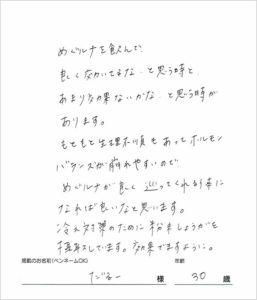 めぐルナを飲んで
良く効いてるな、と思う時と、
あまり効果ないかな、と思う時が
あります。
もともと生理不順もあってホルモン
バランスが崩れやすいので
めぐルナが良く巡ってくれる体に
なれば良いなと思います。
冷え対策のために粉末しょうがを
摂取しています。効果でますように。
掲載のお名前(ペンネームOK)
年齢
だるー 様 30 歳